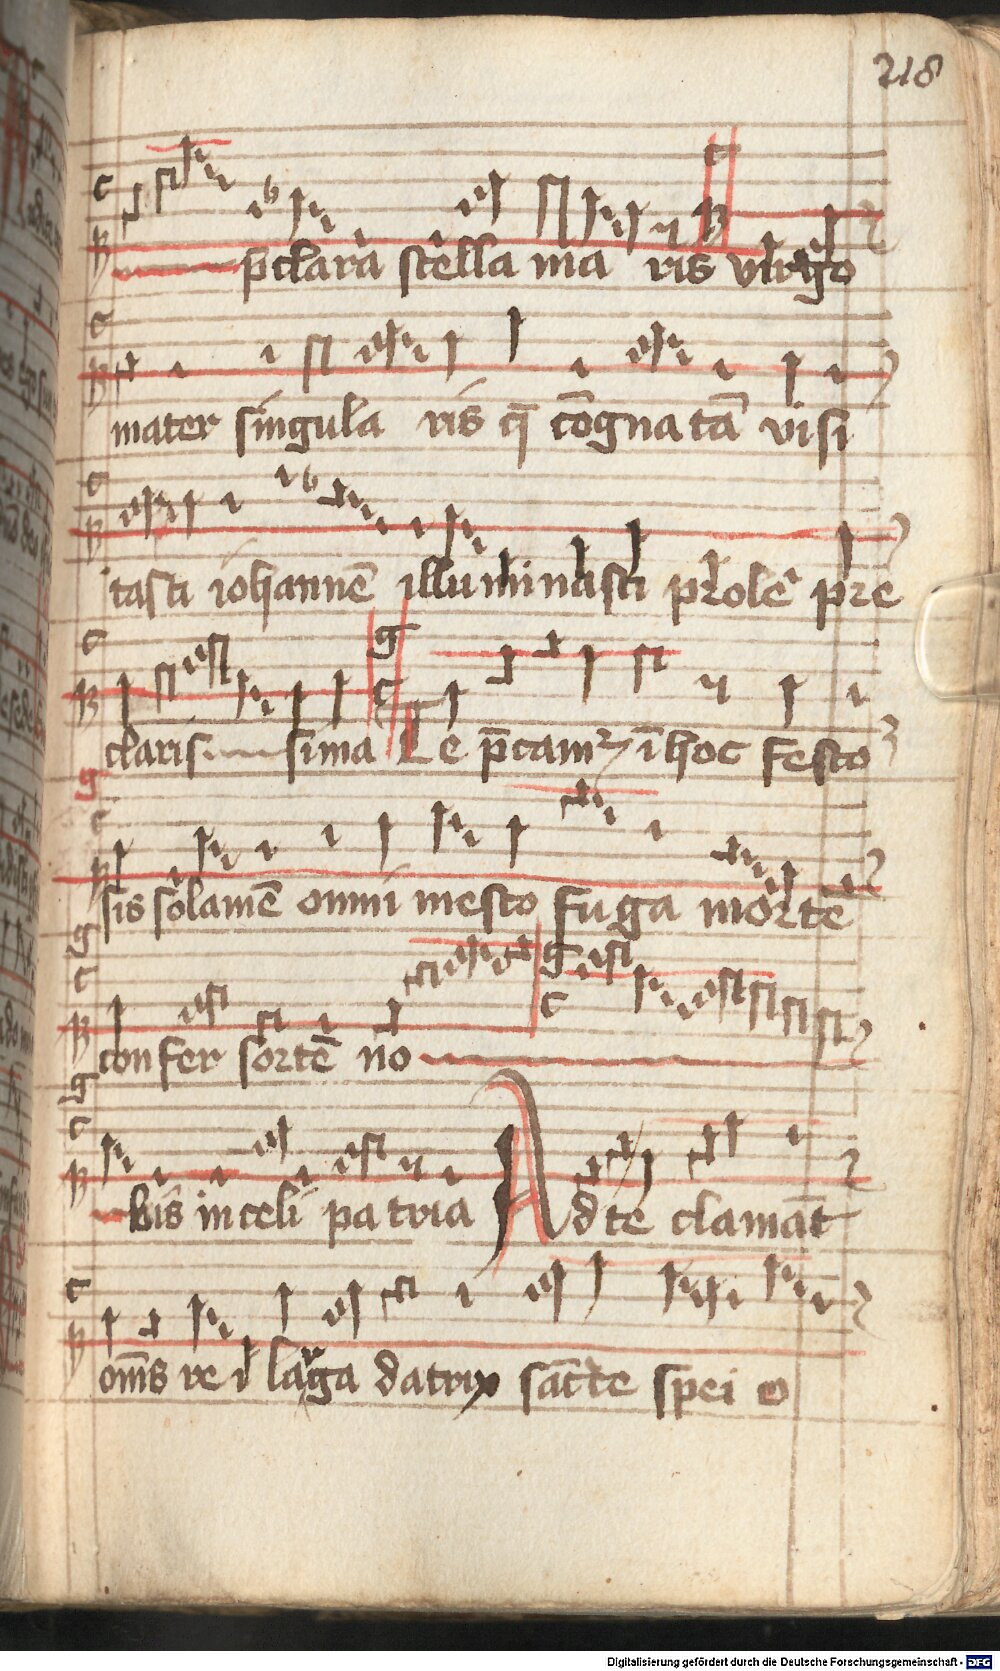 218
p̄clara stella ma ris virgo
mater singula ris q̄ cōgna tā visi
tasti iohannē illuminasti prole pre
claris sima Te p̄camꝛ ī hoc festo
sis solamē omni mesto fuga mortē
confer sortē no
bis in celi patria Ad te clamāt
om̄s re i larga datrix sācte spei o
Digitalisierung gefördert durch die Deutsche Forschungsgemeinschaft - DFG